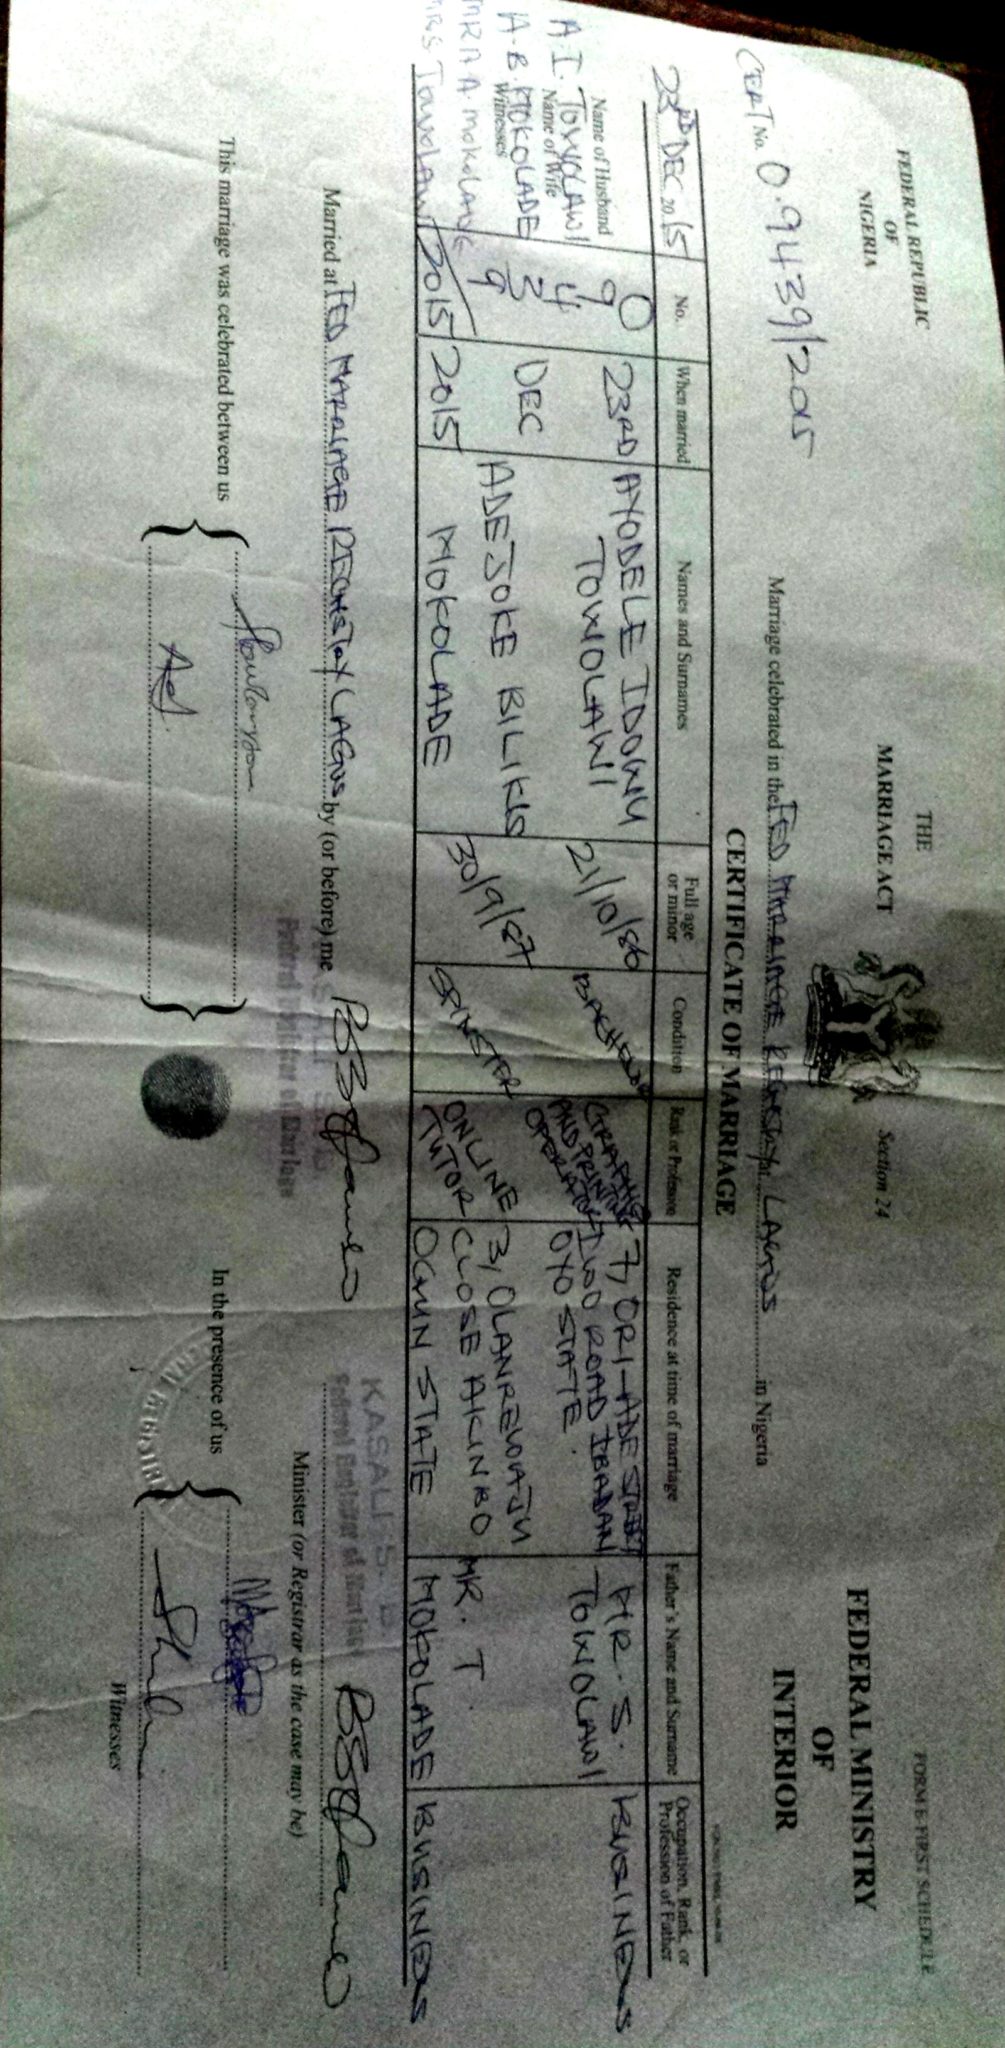 FORM E FIRST SCHEDULE
FEDERAL REPUBLIC
OF
NIGERIA
THE
MARRIAGE ACT
Section 24
FEDERAL MINISTRY
OF
INTERIOR
CERT No. 0.9439/2015
Marriage celebrated in the FED MARRIAGE REGISTRY at LAGOS in Nigeria
CERTIFICATE OF MARRIAGE
23RD DEC 2015
No.
When married
Names and Surnames
Full age
or minor
Condition
Rank or Profession
Residence at time of marriage
Father's Name and Surname
Occupation, Rank, or
Profession of Father
Name of Husband
A. I. TOWOLAWI
Name of Wife
A. B. MOKOLADE
Witnesses
MR A. A. MOKOLADE
MRS TOWOLAWI
0
9
4
3
9
2015
23RD
DEC
2015
AYODELE IDOWU
TOWOLAWI
21/10/86
BACHELOR
GRAPHIC
AND PRINTING
OPERATOR
7, ORI-ADE STREET
IWO ROAD IBADAN
OYO STATE.
MR. S.
TOWOLAWI
BUSINESS
ADEJOKE BILIKIS
MOKOLADE
30/9/87
SPINSTER
ONLINE
TUTOR
3, OLANREWAJU
CLOSE AKINBO
OGUN STATE
MR. T.
MOKOLADE
BUSINESS
Married at FED MARRIAGE REGISTRY LAGOS by (or before) me
KASALI S.
Minister (or Registrar as the case may be)
This marriage was celebrated between us
In the presence of us
Witnesses